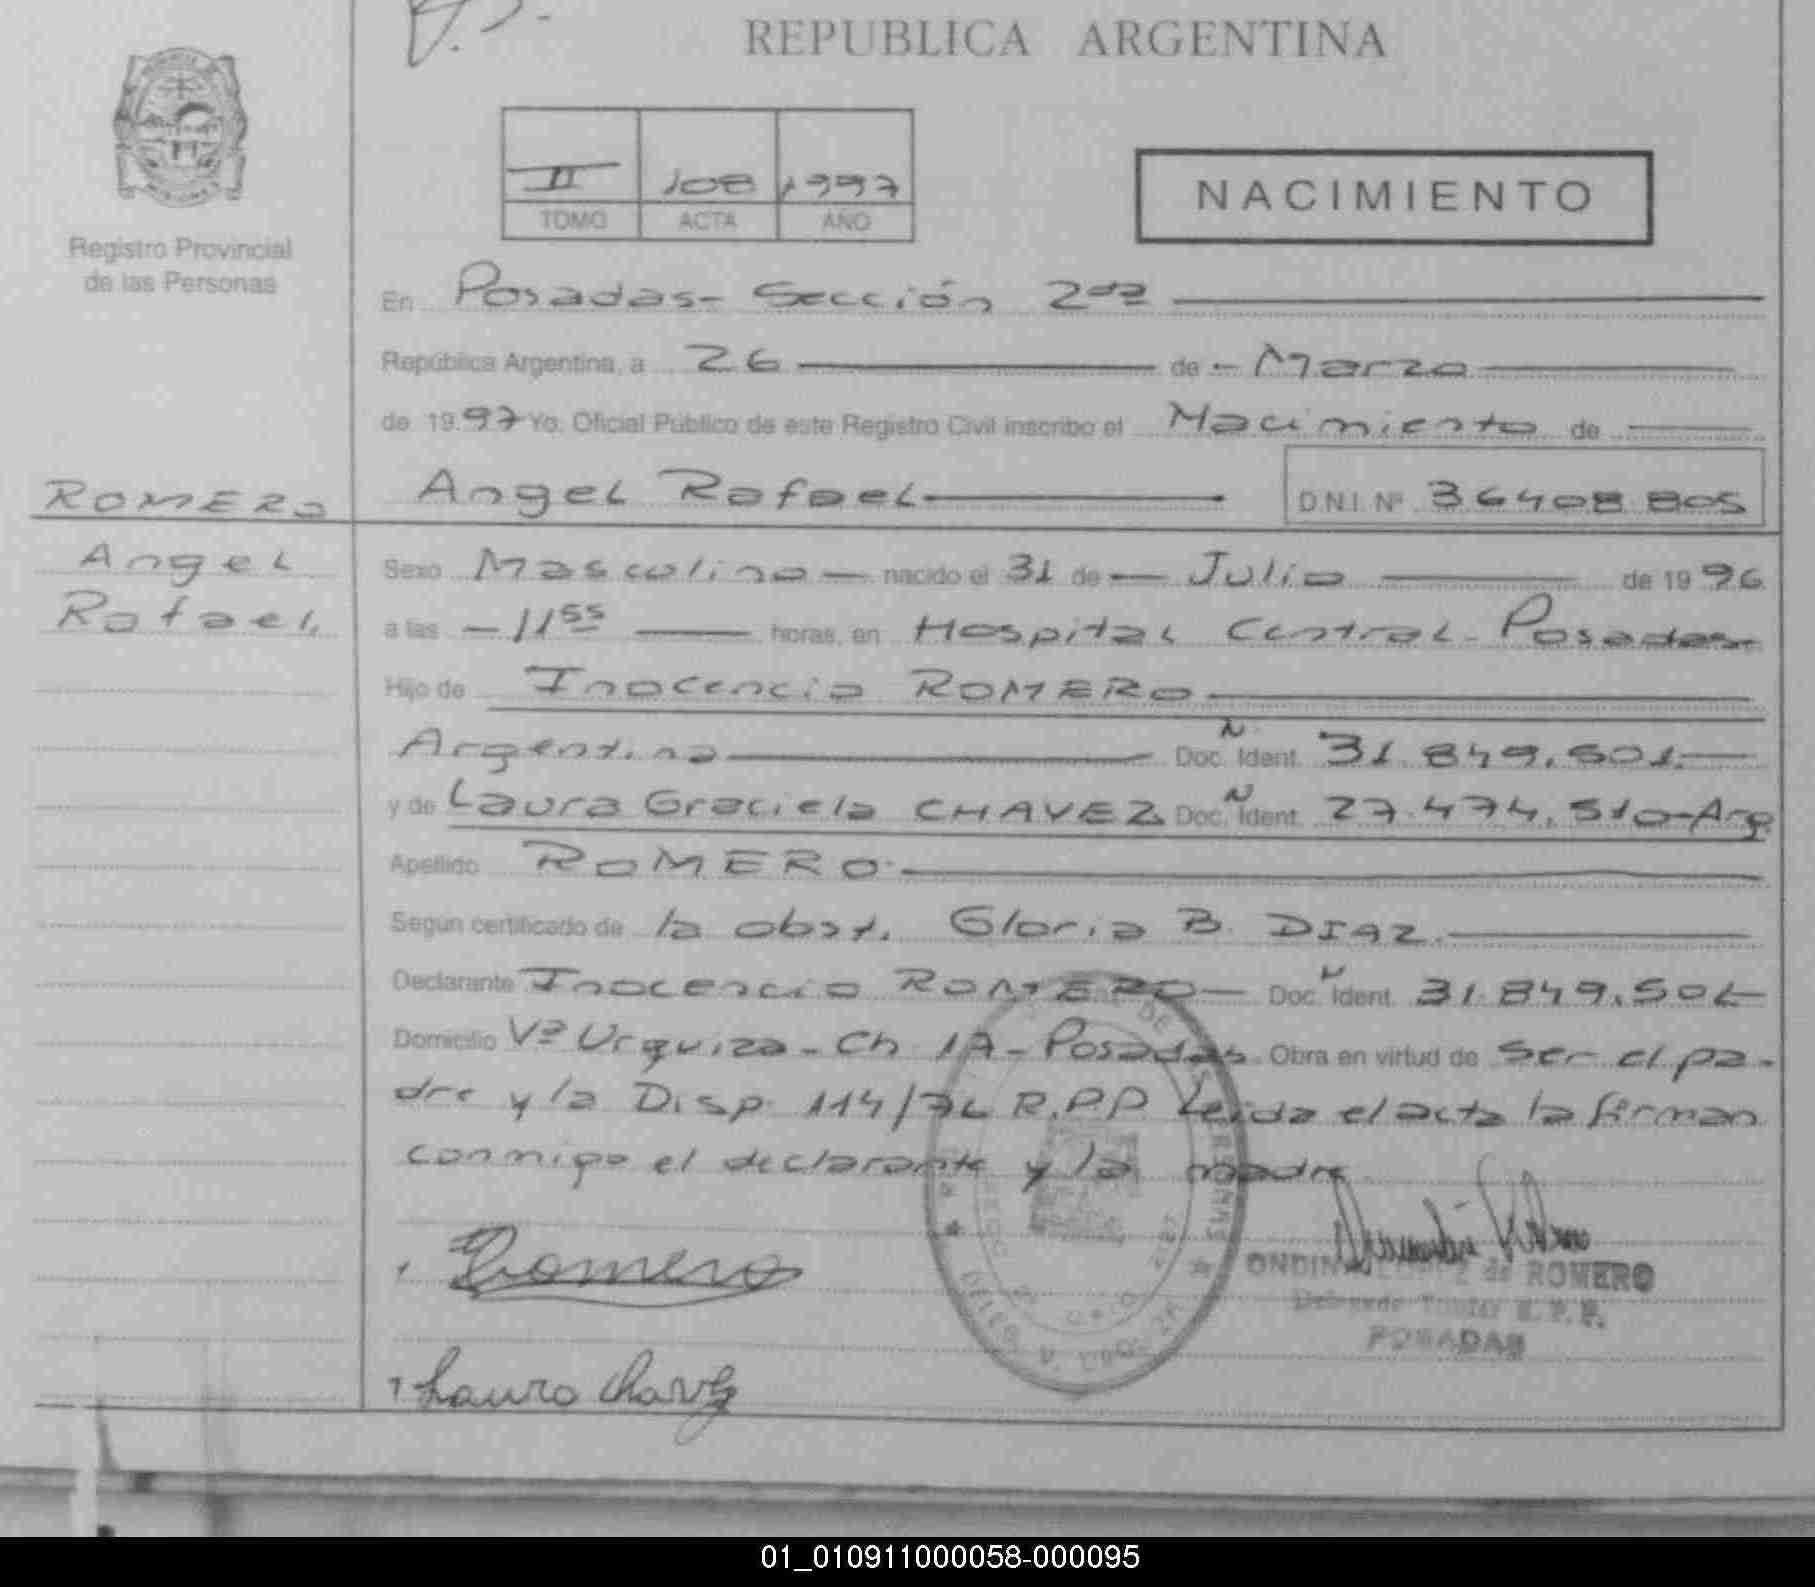 REPUBLICA ARGENTINA
II 108 1997
TOMO ACTA AÑO
NACIMIENTO
Registro Provincial
de las Personas
En Posadas- Sección 2da
República Argentina, a 26 de Marzo
de 1997 Yo, Oficial Público de este Registro Civil inscribo el Nacimiento de
ROMERO
Angel
Rafael
Angel Rafael D.N.I. Nº 36408805
Sexo Masculino nacido el 31 de Julio de 1996
a las 11 55 horas, en Hospital Central- Posadas-
Hijo de Inocencio ROMERO
Argentina Doc. N Ident. 31.849.501.
y de Laura Graciela CHAVEZ Doc. N Ident. 27.474.510-Arg
Apellido ROMERO
Según certificado de la obst. Gloria B. DIAZ.
Declarante Inocencio ROMERO Doc. N Ident. 31.849.501
Domicilio Vª Urquiza- Ch 1A- Posadas. Obra en virtud de ser el pa-
dre y la Disp. 114/76 R.P.P Leida el acta la firman
conmigo el declarante y la madre
Romero
ONDINA LOPEZ de ROMERO
Delegado Titular R.P.P.
POSADAS
Laura Chavez
01_010911000058-000095